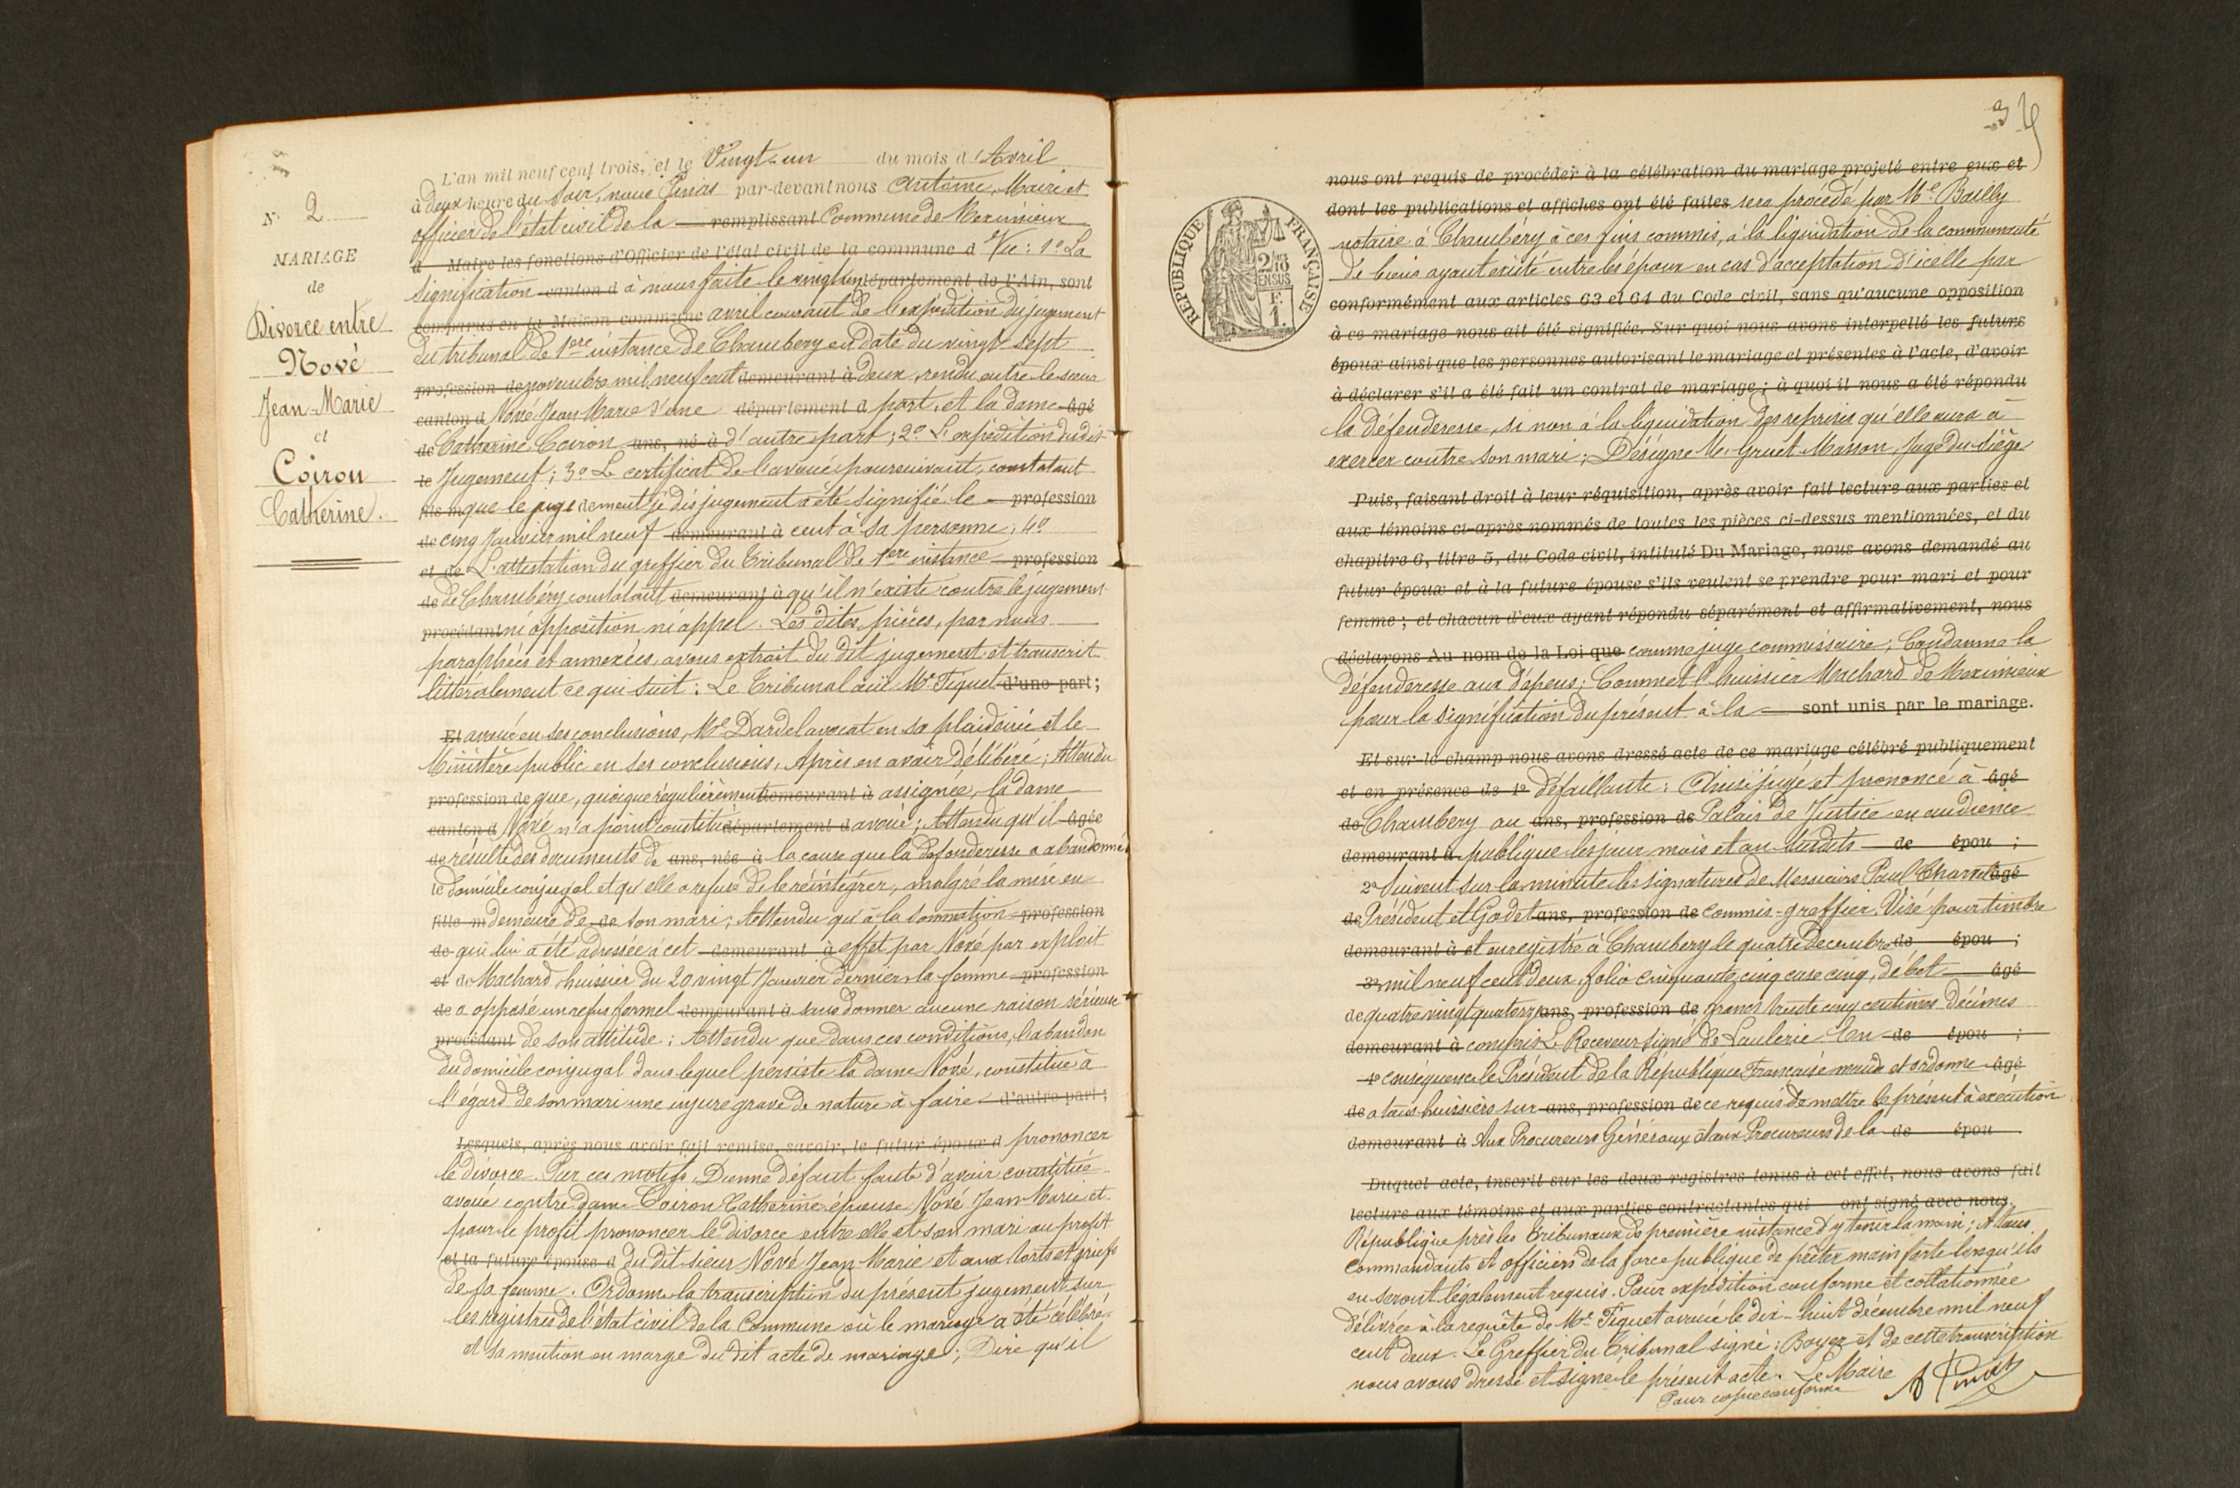 N° 2
MARIAGE
de
Divorce entre
Nové
Jean-Marie
et
Coiron
Catherine.
L'an mil neuf cent trois, et le Vingt-un du mois d'Avril
à deux heure du Soir, nous Pinias par-devant nous Antoine, Maire et
officier de l'état civil de la remplissant Commune de Meximieux
d Maire les fonctions d'Officier de l'état civil de la commune d Vu: 1° La
signification canton d à nous faite le vingt un département de l'Ain, sont
comparus en la Maison commune avril courant de l'expédition du jugement
du tribunal de 1ère instance de Chambery en date du vingt sept
profession de novembre mil neuf cent demeurant à deux, rendu entre le sieur
canton d Nové Jean Marie d'une département d part, et la dame âgé
de Catherine Coiron ans, né à d'autre part; 2° L'expédition du dit
le Jugement; 3° Le certificat de l'avoué poursuivant, constatant
fils m que le juge dement je dis jugement a été signifié le profession
de cinq Janvier mil neuf demeurant à cent à sa personne; 4°
et de L'attestation du greffier du Tribunal de 1ère instance profession
de de Chambéry constatant demeurant à qu'il n'existe contre le jugement
procédant ni opposition ni appel. Les dites pièces, par nous
paraphées et annexées, avons extrait du dit jugement et transcrit
littéralement ce qui suit: Le Tribunal ouï Me Tiquet d'une part;
Et avoué en ses conclusions, Me Dardel avocat en sa plaidoirie et le
Ministère public en ses conclusions, Après en avoir délibéré; Attendu
profession de que, quoique régulièrement demeurant à assignée, la dame
canton d Nové n'a point constitué département d avoué; Attendu qu'il âgée
de résulte des documents de ans, née à la cause que la défenderesse a abandonné
le domicile conjugal et qu'elle a refusé de le réintégrer, malgré la mise en
fille m demeure de de son mari; Attendu qu'à la sommation profession
de qui lui a été adressée à cet demeurant à effet par Nové par exploit
et de Machard, huissier du 20 vingt Janvier dernier la femme profession
de a opposé un refus formel demeurant à sans donner aucune raison sérieuse
procédant de son attitude; Attendu que dans ces conditions, l'abandon
du domicile conjugal dans lequel persiste la dame Nové, constitue à
l'égard de son mari une injure grave de nature à faire d'autre part;
Lesquels, après nous avoir fait remise, savoir, le futur époux d prononcer
le divorce. Par ces motifs Donne défaut faute d'avoir constitué
avoué contre dame Coiron Catherine épouse Nové Jean Marie et
pour le profit prononcer le divorce entre elle et son mari au profit
et la future épouse d du dit sieur Nové Jean Marie et aux torts et griefs
de sa femme. Ordonne la transcription du présent jugement sur
les registres de l'état civil de la Commune où le mariage a été célébré
et sa mention en marge du dit acte de mariage; Dire qu'il
3
RÉPUBLIQUE FRANÇAISE
2/10 EN SUS
F. 1.
nous ont requis de procéder à la célébration du mariage projeté entre eux et
dont les publications et affiches ont été faites sera procédé par Me Bailly
notaire à Chambéry à ces fins commis, à la liquidation de la communauté
de biens ayant existé entre les époux en cas d'acceptation d'icelle par
conformément aux articles 63 et 64 du Code civil, sans qu'aucune opposition
à ce mariage nous ait été signifiée. Sur quoi nous avons interpellé les futurs
époux ainsi que les personnes autorisant le mariage et présentes à l'acte, d'avoir
à déclarer s'il a été fait un contrat de mariage; à quoi il nous a été répondu
la défenderesse, si non à la liquidation des reprises qu'elle aura à
exercer contre son mari; Désigne M. Gruet Masson, Juge du Siège
Puis, faisant droit à leur réquisition, après avoir fait lecture aux parties et
aux témoins ci-après nommés de toutes les pièces ci-dessus mentionnées, et du
chapitre 6, titre 5, du Code civil, intitulé Du Mariage, nous avons demandé au
futur époux et à la future épouse s'ils veulent se prendre pour mari et pour
femme; et chacun d'eux ayant répondu séparément et affirmativement, nous
déclarons Au nom de la Loi que comme juge commissaire; Condamne la
défenderesse aux dépens; Commet l'huissier Machard de Meximieux
pour la signification du présent à la sont unis par le mariage.
Et sur-le-champ nous avons dressé acte de ce mariage célébré publiquement
et en présence de 1° défaillante; Ainsi jugé et prononcé à âgé
de Chambery au ans, profession de Palais de Justice en audience
demeurant à publique les jour mois et an susdits de épou ;
2° Suivent sur la minute les signatures de Messieurs Paul Charvet âgé
de Président et Godet ans, profession de commis-greffier. Visé pour timbre
demeurant à et enregistré à Chambery le quatre Décembre de épou ;
3° mil neuf cent deux, folio cinquante cinq case cinq, débet âgé
de quatre vingt quatorze ans, profession de francs trente cinq centimes Décimes
demeurant à compris Le Receveur signé de Laulerie En de épou ;
4° conséquence le Président de la République Française mande et ordonne âgé
de a tous huissiers sur ans, profession de ce requis de mettre le présent à exécution
demeurant à Aux Procureurs Généraux et aux Procureurs de la de épou
Duquel acte, inscrit sur les deux registres tenus à cet effet, nous avons fait
lecture aux témoins et aux parties contractantes qui ont signé avec nous
République près les Tribunaux de première instance d'y tenir la main; A tous
commandants et officiers de la force publique de prêter main forte lorsqu'ils
en seront légalement requis. Pour expédition conforme et collationnée
délivrée à la requête de Me Tiquet avoué le dix-huit décembre mil neuf
cent deux. Le Greffier du Tribunal signé: Boyer et de cette transcription
nous avons dressé et signé le présent acte. Le Maire
Pour copie conforme